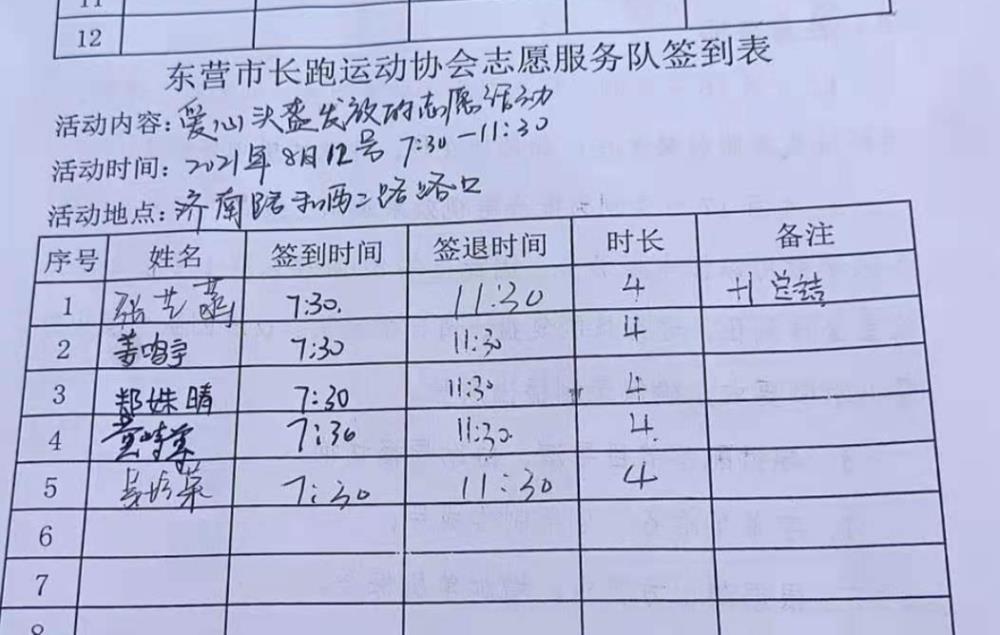 11
12
东营市长跑运动协会志愿服务队签到表
活动内容: 爱心头盔发放的志愿活动
活动时间: 2021年8月12号 7:30-11:30
活动地点: 济南路和西二路路口
序号 姓名 签到时间 签退时间 时长 备注
1 张艺 7:30. 11:30 4 +1 总结
2 姜鸣宇 7:30 11:30 4
3 郑姝晴 7:30 11:30 4
4 7:30 11:30. 4.
5 7:30 11:30 4
6
7
8